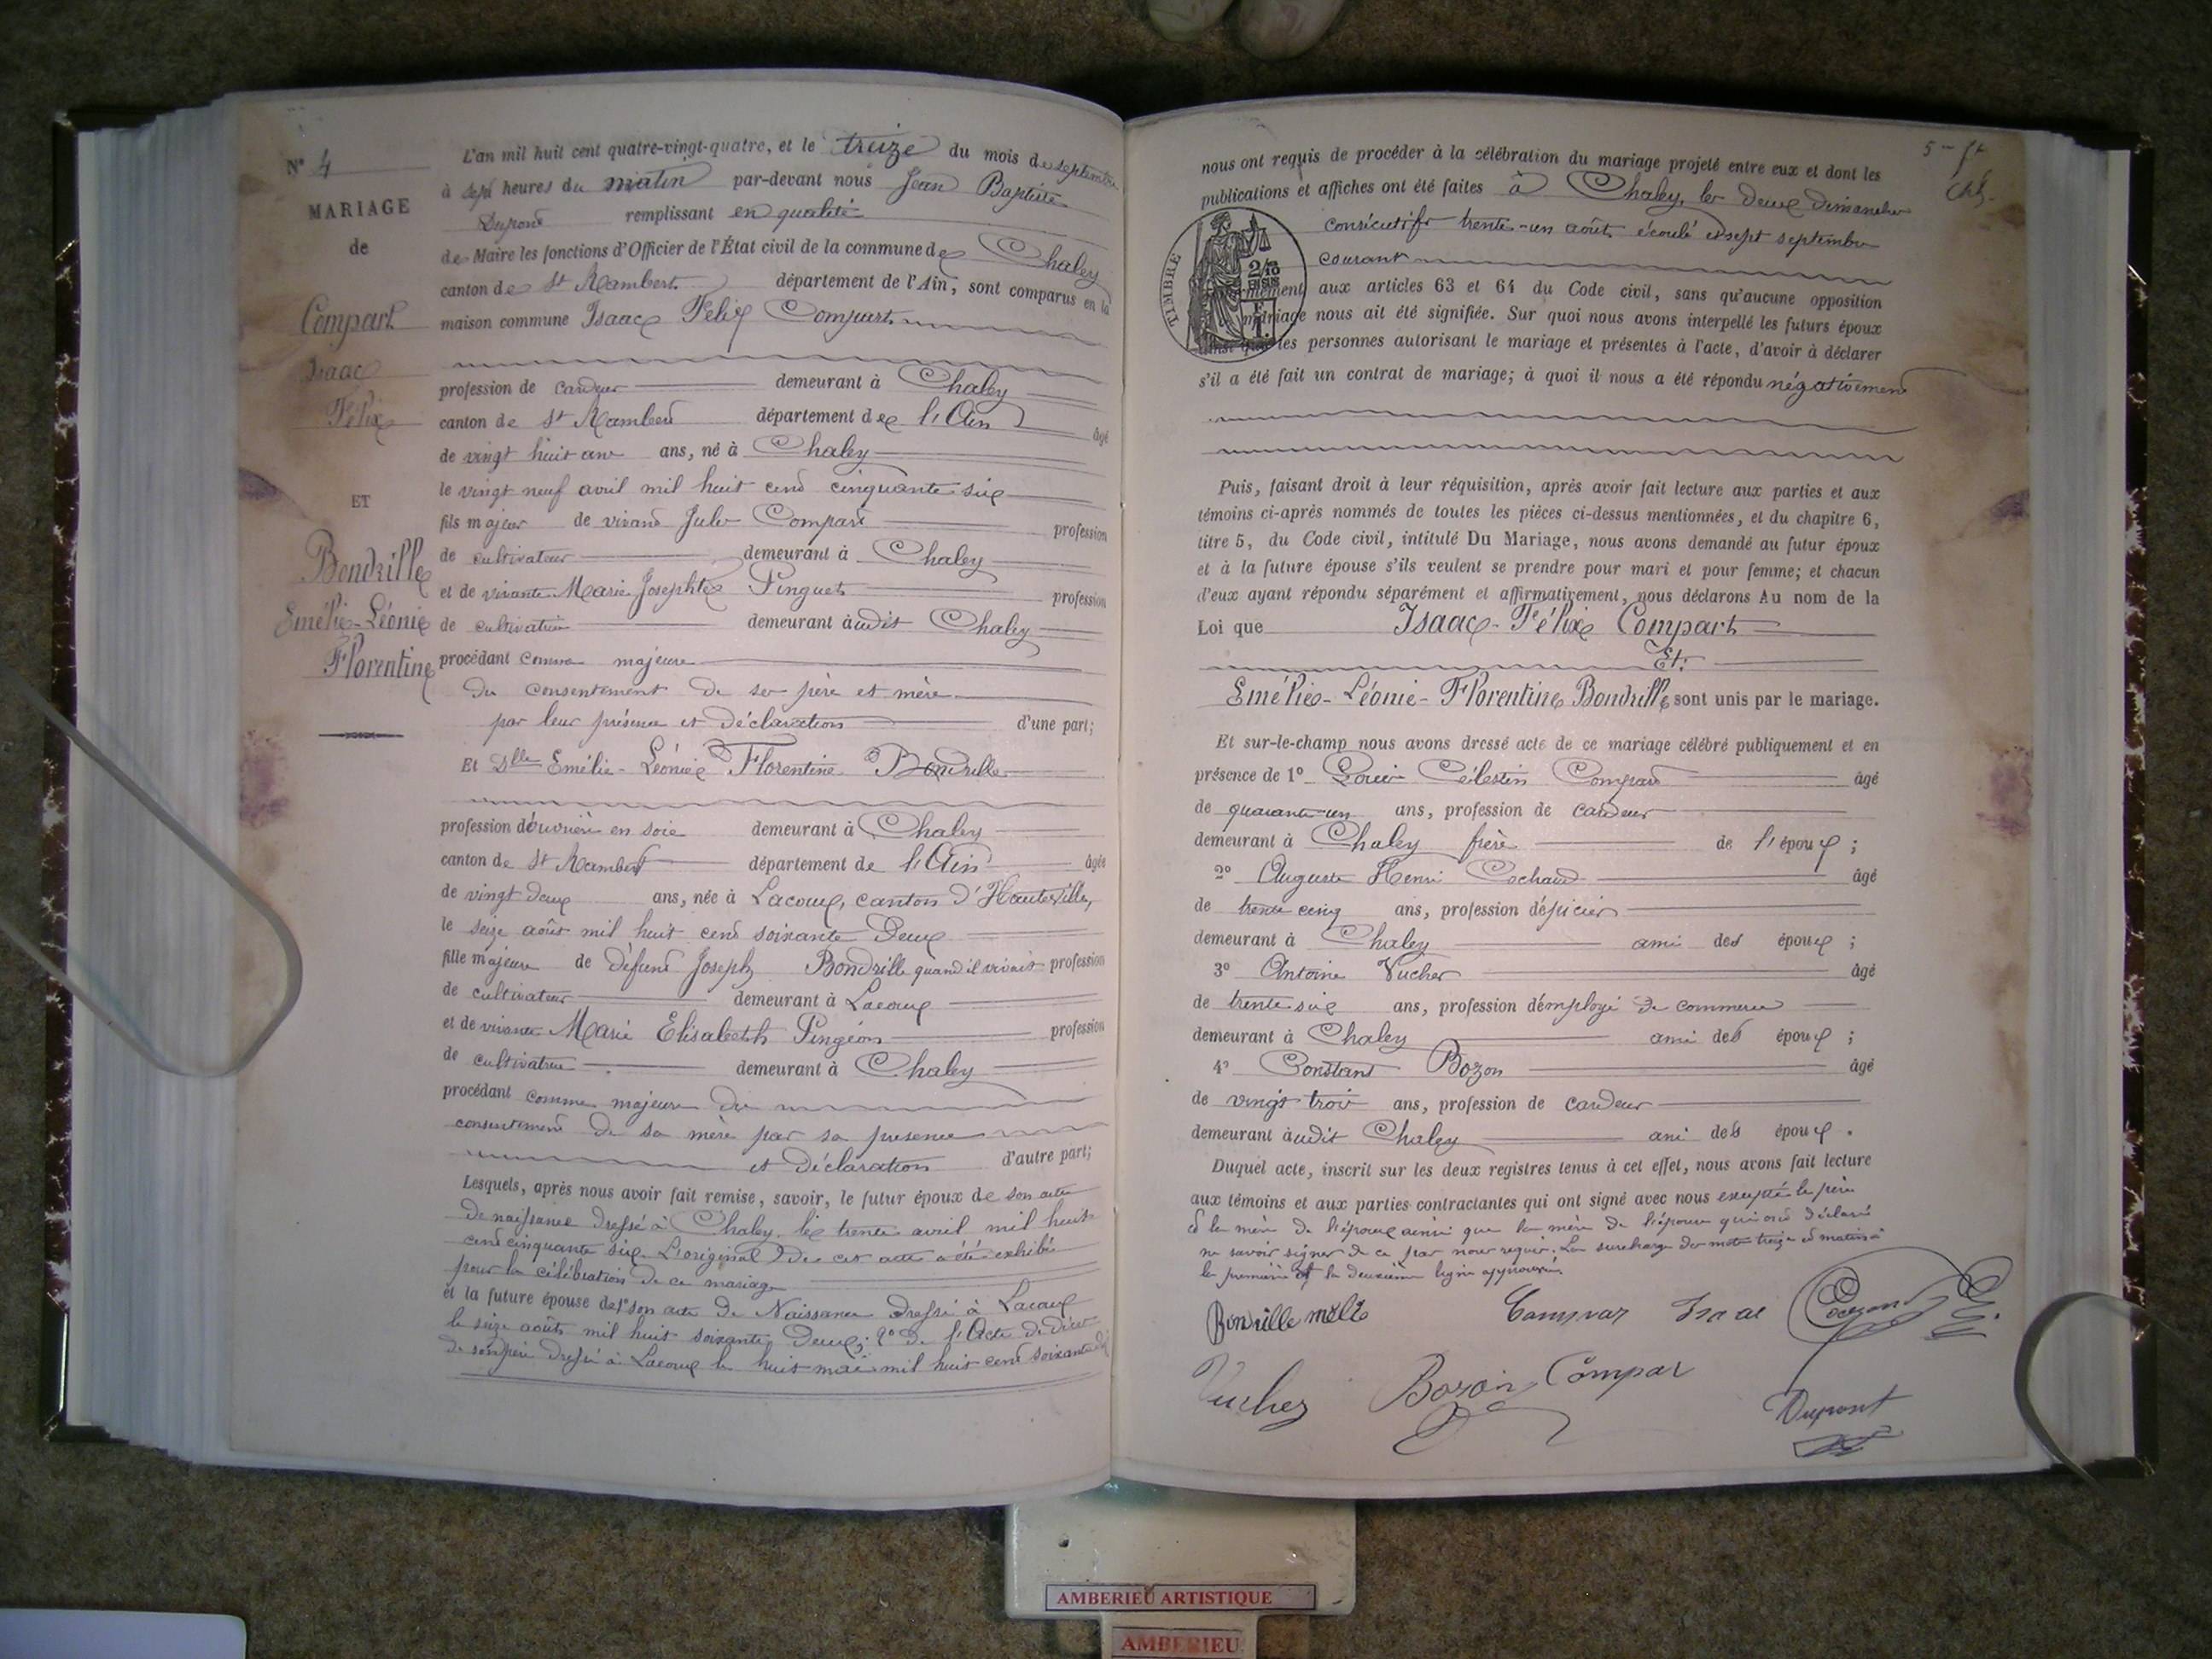 N° 4
MARIAGE
de
Compart
Isaac
Félix
ET
Bondrille
Emélie-Léonie
Florentine
L'an mil huit cent quatre-vingt-quatre, et le treize du mois de septembre
à sept heures du matin par-devant nous Jean Baptiste
Dupont remplissant en qualité
de Maire les fonctions d'Officier de l'État civil de la commune de Chaley
canton de St Rambert département de l'Ain, sont comparus en la
maison commune Isaac Félix Compart
profession de cardeur demeurant à Chaley
canton de St Rambert département de l'Ain âgé
de vingt huit ans ans, né à Chaley
le vingt neuf avril mil huit cent cinquante six
fils majeur de vivant Jules Compart profession
de cultivateur demeurant à Chaley
et de vivante Marie Josephte Pinguet profession
de cultivatrice demeurant à udit Chaley
procédant comme majeure
du consentement de ses père et mère
par leur présence et déclaration d'une part;
Et Dlle Emélie-Léonie Florentine Bondrille
profession d'ouvrière en soie demeurant à Chaley
canton de St Rambert département de l'Ain âgée
de vingt deux ans, née à Lacoux, canton d'Hauteville,
le seize août mil huit cent soixante deux
fille majeure de défunt Joseph Bondrille quand il vivait profession
de cultivateur demeurant à Lacoux
et de vivante Marie Elisabeth Pingéon profession
de cultivatrice demeurant à Chaley
procédant comme majeure du
consentement de sa mère par sa presence
et déclaration d'autre part;
Lesquels, après nous avoir fait remise, savoir, le futur époux de son acte
de naissance dressé à Chaley le trente avril mil huit
cent cinquante six. L'original de cet acte a été exhibé
pour la célébration de ce mariage
et la future épouse de 1° son acte de Naissance dressé à Lacoux
le seize août mil huit soixante deux; 2° de l'Acte de décès
de son père dressé à Lacoux le huit mai mil huit cent soixante
nous ont requis de procéder à la célébration du mariage projeté entre eux et dont les
publications et affiches ont été faites à Chaley, les deux dimanches
consécutifs trente-un août écoulé et sept septembre
courant
TIMBRE
2/10
EN SUS
aux articles 63 et 64 du Code civil, sans qu'aucune opposition
mariage nous ait été signifiée. Sur quoi nous avons interpellé les futurs époux
ainsi que les personnes autorisant le mariage et présentes à l'acte, d'avoir à déclarer
s'il a été fait un contrat de mariage; à quoi il nous a été répondu négativement
Puis, faisant droit à leur réquisition, après avoir fait lecture aux parties et aux
témoins ci-après nommés de toutes les pièces ci-dessus mentionnées, et du chapitre 6,
titre 5, du Code civil, intitulé Du Mariage, nous avons demandé au futur époux
et à la future épouse s'ils veulent se prendre pour mari et pour femme; et chacun
d'eux ayant répondu séparément et affirmativement, nous déclarons Au nom de la
Loi que Isaac-Félix Compart
Et
Emélie-Léonie-Florentine Bondrille sont unis par le mariage.
Et sur-le-champ nous avons dressé acte de ce mariage célébré publiquement et en
présence de 1° Louis Célestin Compart âgé
de quarante-un ans, profession de cardeur
demeurant à Chaley frère de l'époux;
2° Auguste Henri Cochand âgé
de trente cinq ans, profession d'épicier
demeurant à Chaley ami des époux;
3° Antoine Vucher âgé
de trente six ans, profession d'employé de commerce
demeurant à Chaley ami des époux;
4° Constant Bozon âgé
de vingt trois ans, profession de cardeur
demeurant à udit Chaley ami des époux.
Duquel acte, inscrit sur les deux registres tenus à cet effet, nous avons fait lecture
aux témoins et aux parties contractantes qui ont signé avec nous excepté le père
et la mère de l'époux ainsi que la mère de l'épouse qui ont déclaré
ne savoir signer de ce par nous requis. La surcharge des mots treize et matin à
la première et la deuxième ligne approuvée.
Bondrille mélie Compar Isaac
Vucher Bozon Compar
Dupont
AMBERIEU ARTISTIQUE
AMBERIEU